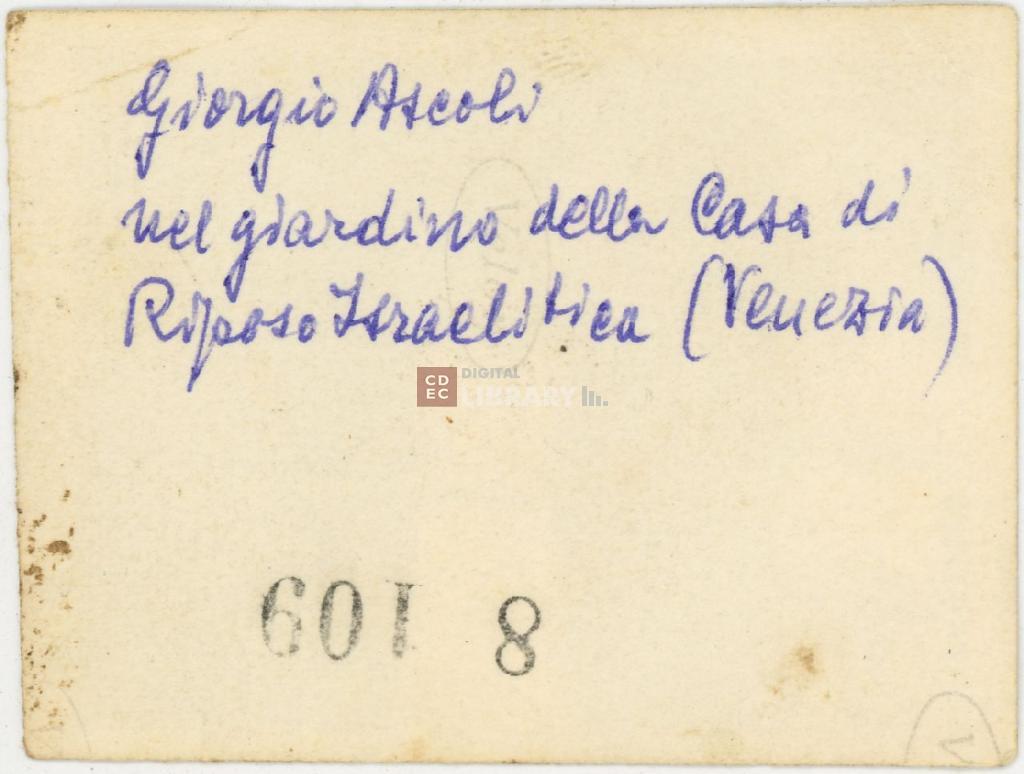 Giorgio Ascoli
nel giardino della Casa di
Riposo Israelitica (Venezia)
CDEC DIGITAL LIBRARY
8 109